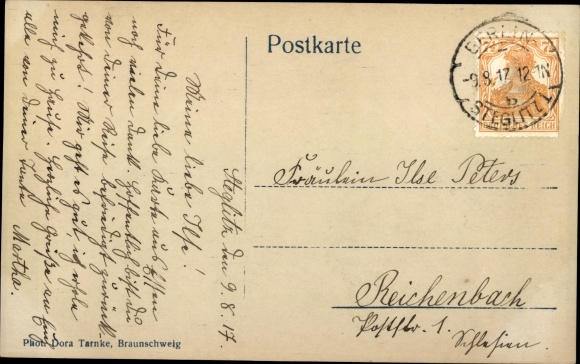 Postkarte
BERLIN-
-9.8.17 12-1N
b
(STEGLITZ)
Fräulein Ilse Peters
Reichenbach
Poststr. 1.
Schlesien.
Steglitz den 9.8.17.
Meine liebe Ilse!
Für deine liebe Karte aus Essen
noch vielen Dank. Hoffentlich bist Du
von deiner Reise befriedigt zurück-
gekehrt! Wir geht es gut, ich erhole
mich zu Hause. Herzliche Grüße an Euch
alle von deiner Tante Martha.
Phot. Dora Tarnke, Braunschweig